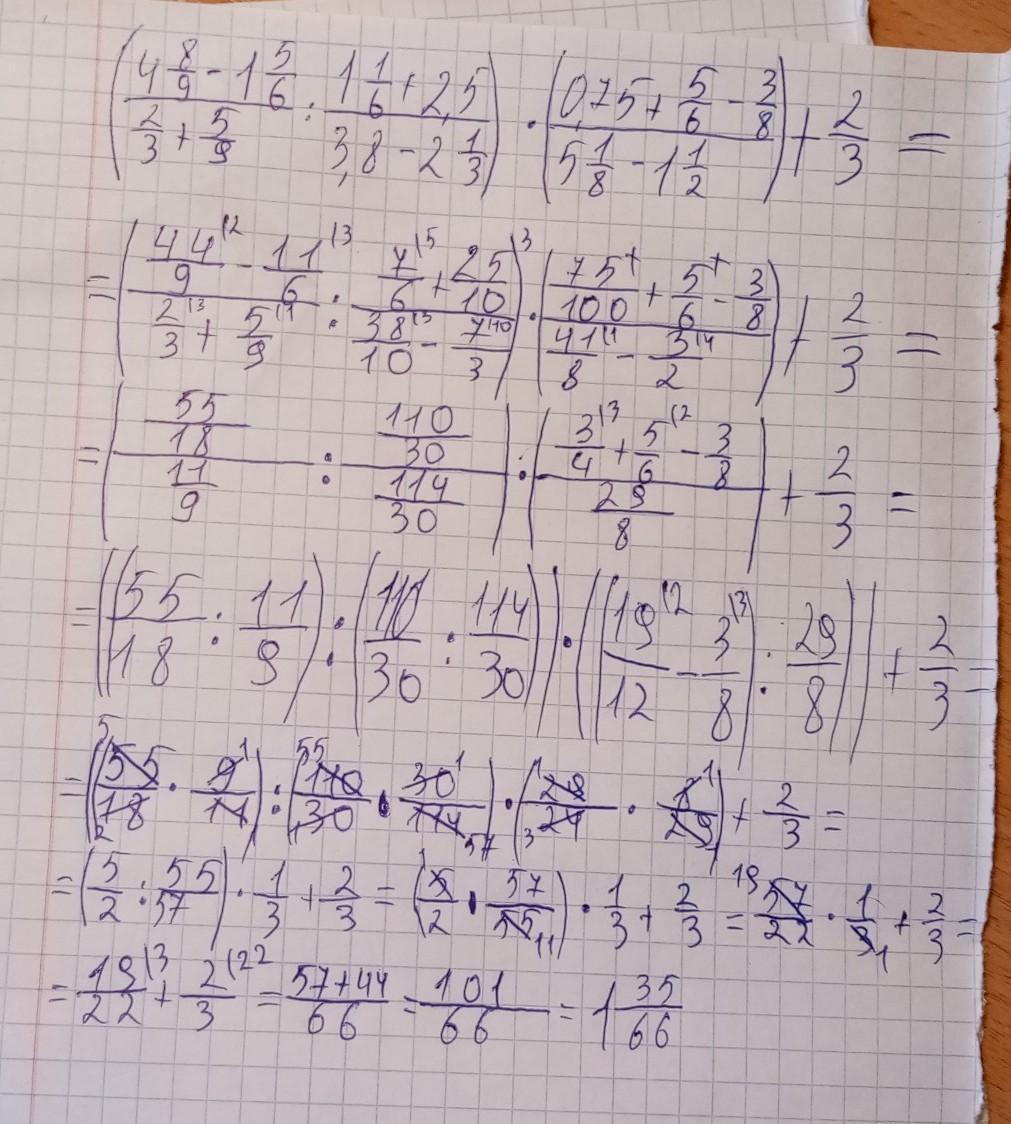 ((4 8/9 - 1 5/6)/(2/3 + 5/9) : (1 1/6 + 2,5)/(3,8 - 2 1/3)) · ((0,75 + 5/6 - 3/8)/(5 1/8 - 1 1/2)) + 2/3 =
= ((44/9 \2 - 11/6 \3)/(2/3 \3 + 5/9 \1) : (7/6 \5 + 25/10 \3)/(38/10 \3 - 7/3 \10)) · ((75/100 + 5/6 - 3/8)/(41/8 \1 - 3/2 \4)) + 2/3 =
= ((55/18)/(11/9) : (110/30)/(114/30)) : ((3/4 \3 + 5/6 \2 - 3/8)/(29/8)) + 2/3 =
= ((55/18 : 11/9) : (110/30 : 114/30)) · ((19/12 \2 - 3/8 \3) : 29/8)) + 2/3 =
= (55/18 · 9/11) : (110/30 · 30/114) · (29/24 · 8/29) + 2/3 =
= (5/2 : 55/57) · 1/3 + 2/3 = (5/2 · 57/55) · 1/3 + 2/3 = 57/22 · 1/3 + 2/3 =
= 19/22 \3 + 2/3 \22 = 57+44/66 = 101/66 = 1 35/66